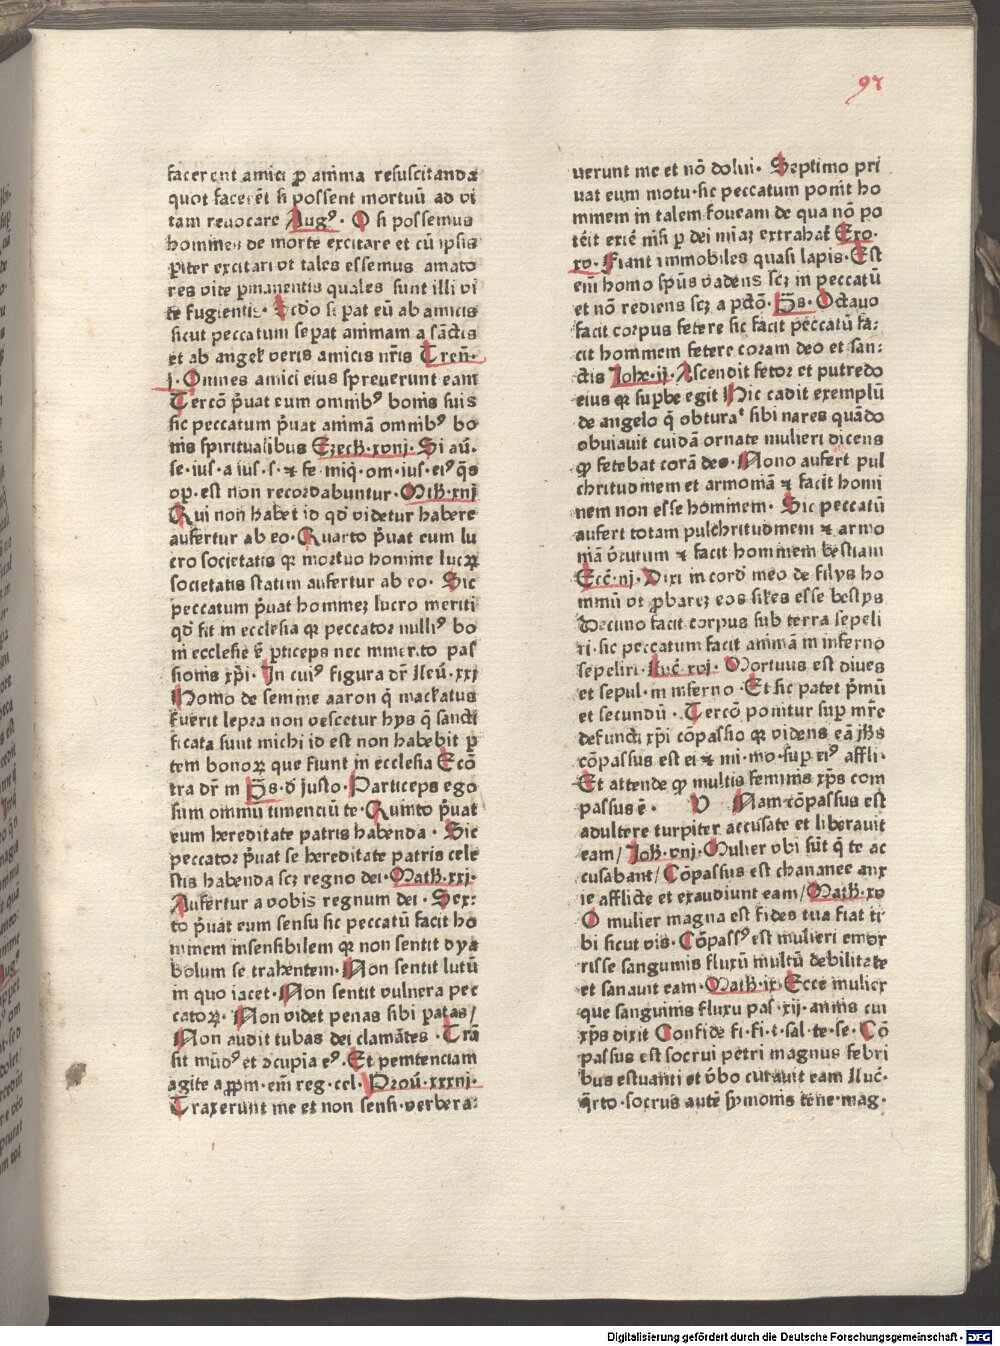 97
facerent amici ꝓ aīma resuscitanda
quot facerēt si possent mortuū ad vi
tam reuocare Augꝰ · O si possemus
homines de morte excitare et cū ipsis
ꝑiter excitari vt tales essemus amato
res vite ꝑmanentis quales sunt illi vi
te fugientis · Scdo sepat eū ab amicis
sicut peccatum sepat animam a sāctis
et ab angeł veris amicis nr̄is Tren̄ ·
j · Omnes amici eius spreuerunt eam
Tercō p̄uat eum omnibꝰ bonis suis
sic peccatum p̄uat animā omnibꝰ bo
nis spiritualibus Ezech · xviij · Si au̅ ·
se · ius · a ius · s · ⁊ fe · miq̄ · om · ius · eiꝰ q̄s
op · est non recordabuntur · Mth · xiij
Qui non habet id qd̓ videtur habere
aufertur ab eo · Quarto p̄uat eum lu
cro societatis qꝛ mortuo homine lucꝝ
societatis statim aufertur ab eo · Sic
peccatum p̄uat homineꝫ lucro meriti
qd̓ fit in ecclesia qꝛ peccator nulliꝰ bo
ni ecclesie ē ꝑticeps nec minerito pas
sionis xp̄i · In cuiꝰ figura dr̄ Leū · xxi
Homo de semine aaron q̄ maclatus
fuerit lepra non vescetur hys q̄ sancti
ficata sunt michi id est non habebit ꝑ
tem bonoꝝ que fiunt in ecclesia Ecō
tra dr̄ in Ps · d̓ justo · Particeps ego
sum omniū timenciū te · Quinto p̄uat
eum hereditate patris habenda · Sic
peccator p̄uat se hereditate patris cele
stis habenda scꝫ regno dei · Math · xxj ·
Aufertur a vobis regnum dei · Sex:
to p̄uat eum sensu sic peccatū facit ho
minem insensibilem qꝛ non sentit dya
bolum se trahentem · Non sentit lutū
in quo iacet · Non sentit vulnera pec
catoꝝ · Non videt penas sibi paratas/
Non audit tubas dei clamātes · Trā
sit mūdꝰ et ɔcupia eꝰ · Et penitenciam
agite appm · eni̅ reg · cel · Prou̅ · xxxiij ·
Traxerunt me et non sensi · verbera:
uerunt me et nō dolui · Septimo pri
uat eum motu · sic peccatum ponit ho
minem in talem foueam de qua nō po
terit exire nisi ꝑ dei mīaꝫ extrahat̄ Exo ·
xv · Fiant immobiles quasi lapis · Est
eni̅ homo spūs vadens scꝫ in peccatū
et nō rediens scꝫ a pctō · Ps · Octauo
facit corpus fetere sic facit peccatū fa:
cit hominem fetere coram deo et san:
ctis Johe · ij · Ascendit fetor et putredo
eius qꝛ supbe egit Hic cadit exemplū
de angelo q̄ obturaᵗ sibi nares quādo
obuiauit cuidā ornate mulieri dicens
ꝙ fetebat corā deo · Nono aufert pul
chritudinem et armoniā ⁊ facit homi
nem non esse hominem · Sic peccatū
aufert totam pulchritudinem ⁊ armo
niā v̓tutum ⁊ facit hominem bestiam
Eccī · iij · Dixi in corde meo de filijs ho
minū vt ꝓbareꝫ eos siłes esse bestijs
Decimo facit corpus sub terra sepeli
ri · sic peccatum facit animā in inferno
sepeliri · Luc̄ · xvj · Mortuus est diues
et sepul · in inferno · Et sic patet p̄mū
et secundū · Tercō ponitur sup mr̄e
defuncti xp̄i cōpassio qꝛ videns eā jhs
cōpassus est ei ⁊ mi · mo · sup eiꝰ affli ·
Et attende ꝙ multis feminis xp̄s com
passus ē · D Nam cōpassus est
adultere turpiter accusate et liberauit
eam/ Joh · viij · Mulier vbi sūt q̄ te ac
cusabant/ Cōpassus est chananee anx
ie afflicte et exaudiunt eam/ Math · xv
O mulier magna est fides tua fiat ti
bi sicut vis · Cōpassꝰ est mulieri emor
risse sanguinis fluxū multū debilitate
et sanauit eam · Math · ix · Ecce mulier
que sanguinis fluxu pas · xij · annis cui
xp̄s dixit Confide fi · fi · t · sal · te · se · Cō
passus est socrui petri magnus febri
bus estuanti et v̓bo curauit eam Luc̄ ·
q̄rto · socrus autē symonis tene · mag ·
Digitalisierung gefördert durch die Deutsche Forschungsgemeinschaft · DFG